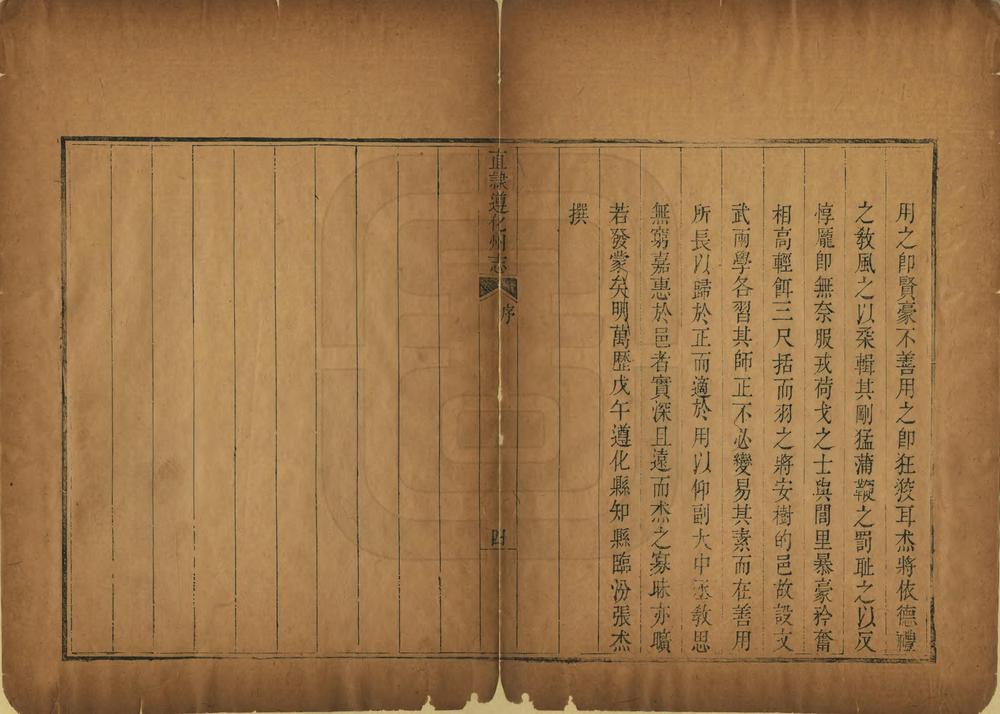 用之卽賢豪不善用之卽狂狡耳杰將依德禮
之敎風之以柔輯其剛猛蒲鞭之罰耻之以反
惇龎卽無奈服戎荷戈之士與閭里暴豪矜奮
相高輕餌三尺括而羽之將安樹的邑故設文
武兩學各習其師正不必變易其素而在善用
所長以歸於正而適於用以仰副大中丞敎思
無窮嘉惠於邑者實深且遠而杰之寡昧亦曠
若發蒙矣明萬歷戊午遵化縣知縣臨汾張杰
撰
直隸遵化州志
序
四